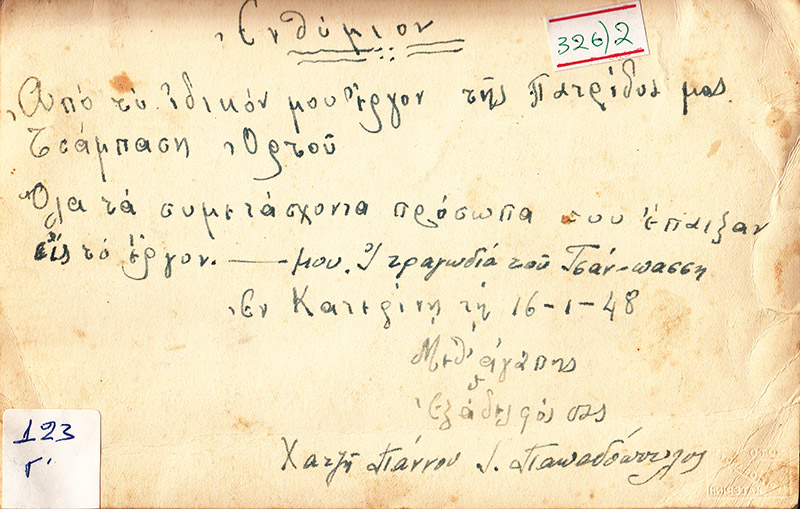 Ἐνθύμιον
326)2
Ἀπό τό ἰδικόν μου Ἔργον τῆς Πατρίδος μας
Τσάμπαση Ὀρτοῦ
Ὅλα τά συμετάσχοντα πρόσωπα που ἔπαιξαν
εἰς τό ἔργον. — μου. Ἡ τραγωδιά τοῦ Τσάν-πασση
Ἐν Κατερίνη τῇ 16-1-48
Μεθ' ἀγάπης
Ἐξάδελφός σας
Χατζῆ Γιάννου Ι. Παπαδόπουλος
123
Γ'